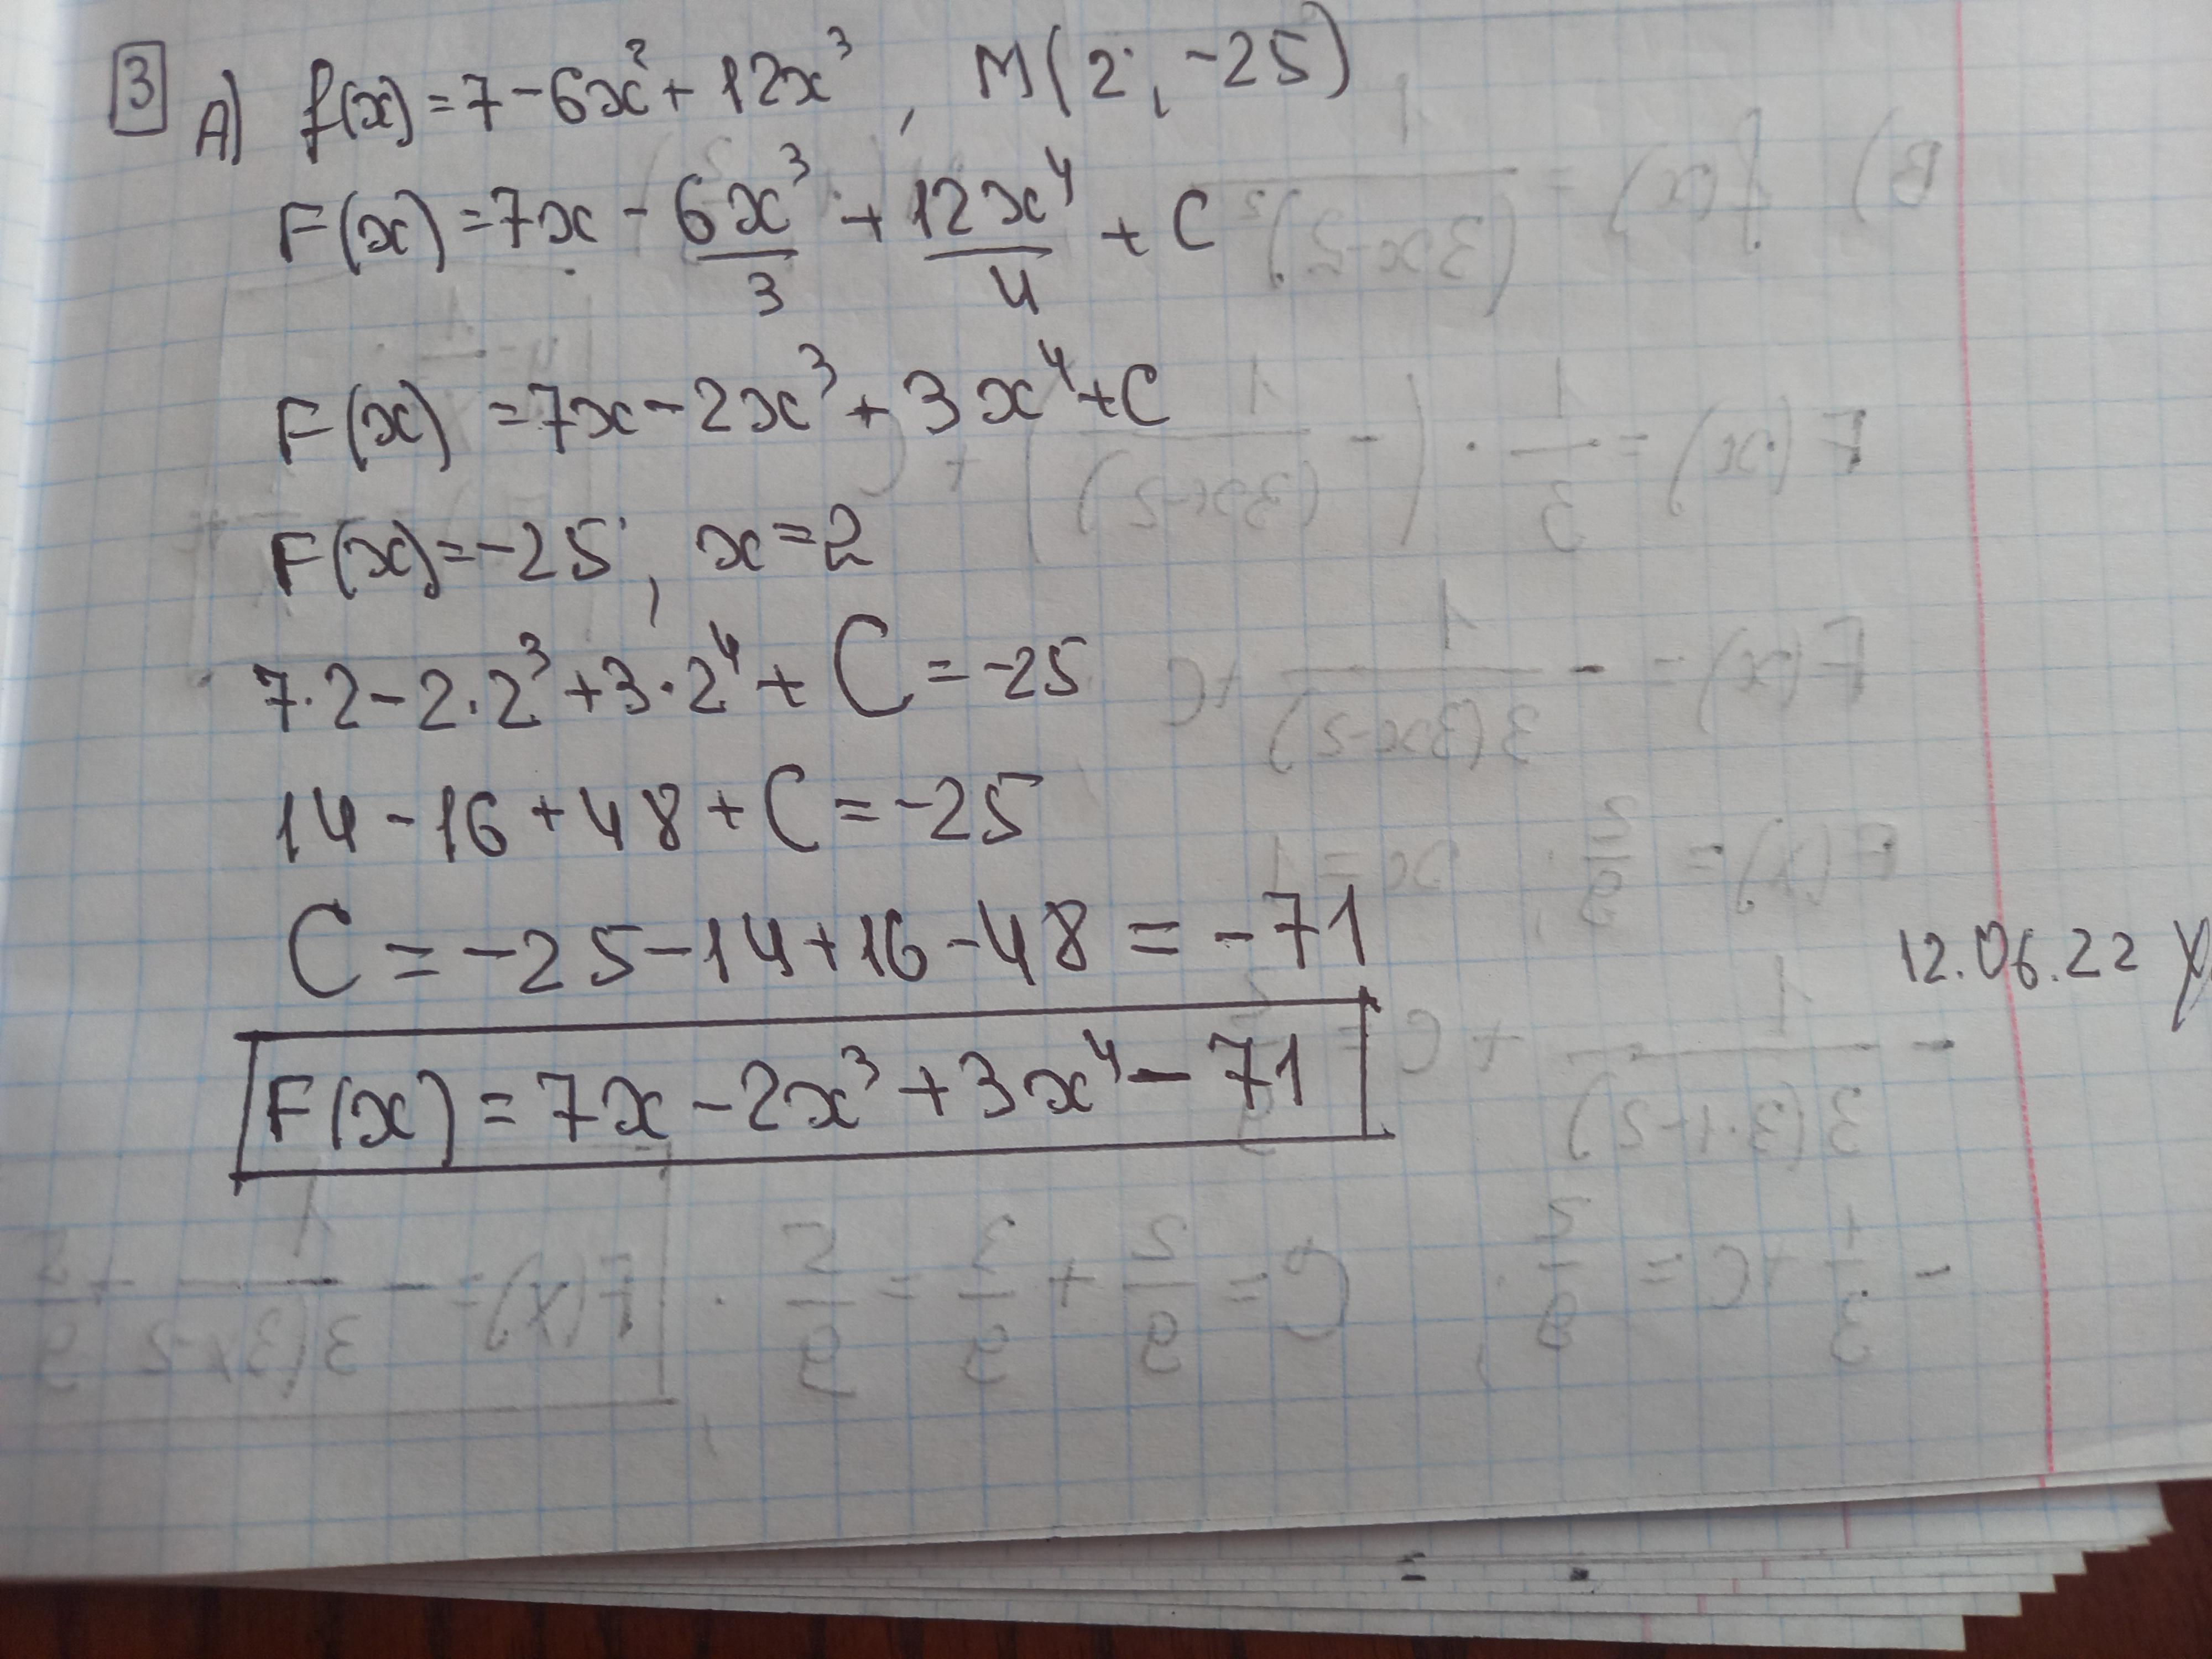 3 A) f(x)=7-6x²+12x³, M(2; -25)
F(x)=7x - 6x³/3 + 12x⁴/4 + C
F(x) =7x-2x³+3x⁴+C
F(x)=-25; x=2
7·2-2·2³+3·2⁴+C=-25
14-16+48+C=-25
C=-25-14+16-48=-71
12.06.22
F(x)=7x-2x³+3x⁴-71